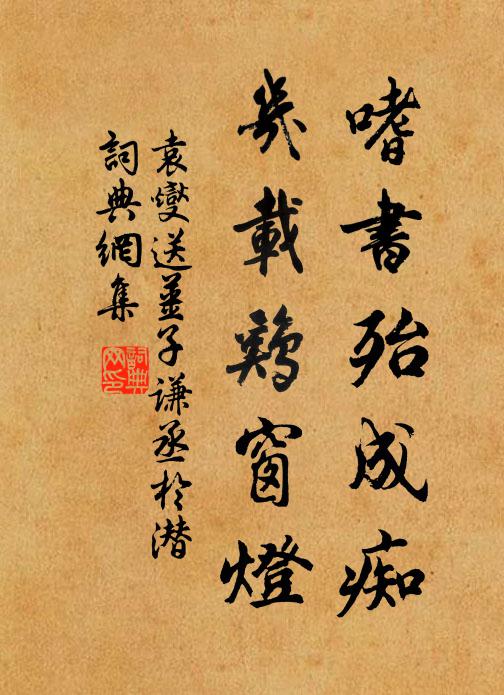 嗜書殆成痴
幾載鷄窗燈
袁燮送姜子謙丞於潛
詞典網集
詞典網印